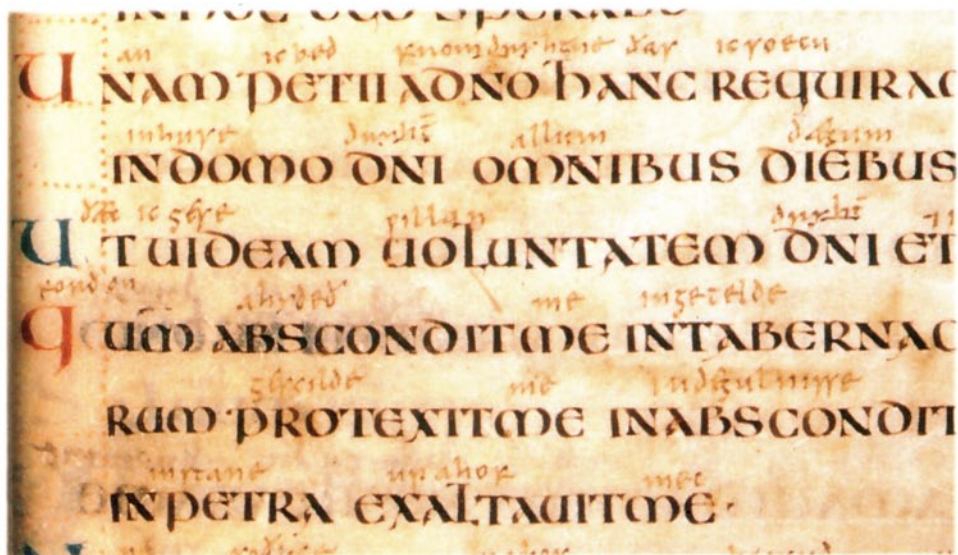 IN HOC EGO SPERABO
an ic bed ðas ic soecu
UNAM PETII A DNO HANC REQUIRA
in huse allum
IN DOMO DNI OMNIBUS DIEBUS
ic willan
UT UIDEAM UOLUNTATEM DNI ET
ahydeð me in getelde
QUM ABSCONDIT ME IN TABERNAC
gescilde me in degulnisse
RUM PROTEXIT ME IN ABSCONDIT
in stane up ahof mec
IN PETRA EXALTAUIT ME ·